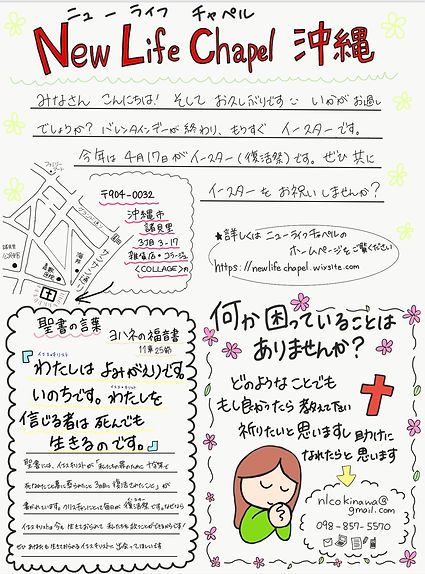 ニュー ライフ チャペル
New Life Chapel 沖縄
みなさん こんにちは! そして お久しぶりです いかがお過し
でしょうか? バレンタインデーが終わり、もうすぐ イースターです。
今年は 4月17日がイースター(復活祭)です。ぜひ 共に
イースターを お祝いしませんか?
〒904-0032
沖縄市
諸見里
3丁目 3-17
雑貨店・コラージュ
<COLLAGE>内
★詳しくは ニューライフチャペルの
ホームページをご覧ください
https://newlifechapel.wixsite.com
聖書の言葉
ヨハネの福音書
11章25節
イエス・キリスト
『わたしは よみがえりです。
いのちです。わたしを
信じる者は 死んでも
生きるのです。』
聖書には、イエスキリストが「私たちの罪のために 十字架で
死なれたこと、葬られたこと 3日目に 復活されたこと」が
書かれています。クリスチャンにとって毎日が 復活祭です。なぜなら
イエスキリストは今も 生きておられて
ぜひ あなたも 生きておられるイエスキリストに 出会ってほしいです
何か困っていることは
ありませんか?
どのような ことでも
もし良かったら 教えて下さい
祈りたいと 思いますし 助けに
なれたらと 思います
nlcokinawa@
gmail.com
098-857-5570